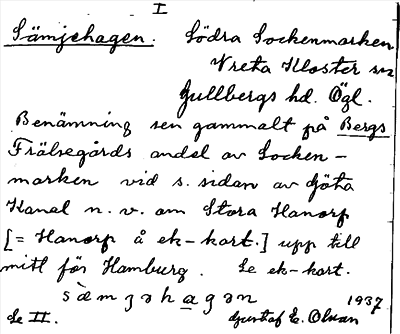 I
Sämjehagen. Södra Sockenmarken
Vreta Kloster sn
Gullbergs hd. Ögl.
Benämning sen gammalt på Bergs
Frälsegårds andel av Socken-
marken vid s. sidan av Göta
Kanal n. v. om Stora Hanorp
[= Hanorp å ek-kart.] upp till
mitt för Hamburg. Se ek-kart.
sämjəhagən
1937
Se II. Gustaf E. Olsson